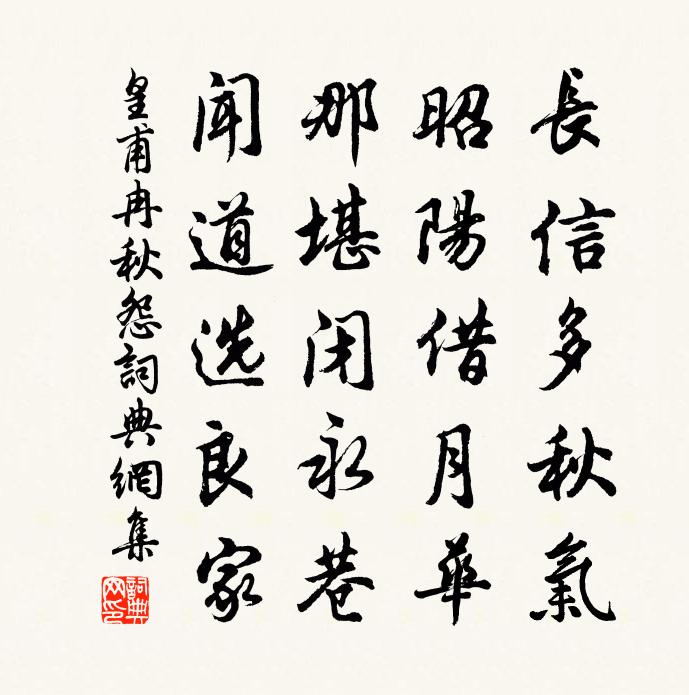 長信多秋氣
昭陽借月華
那堪闭永巷
聞道选良家
皇甫冉秋怨詞典網集
詞典网印